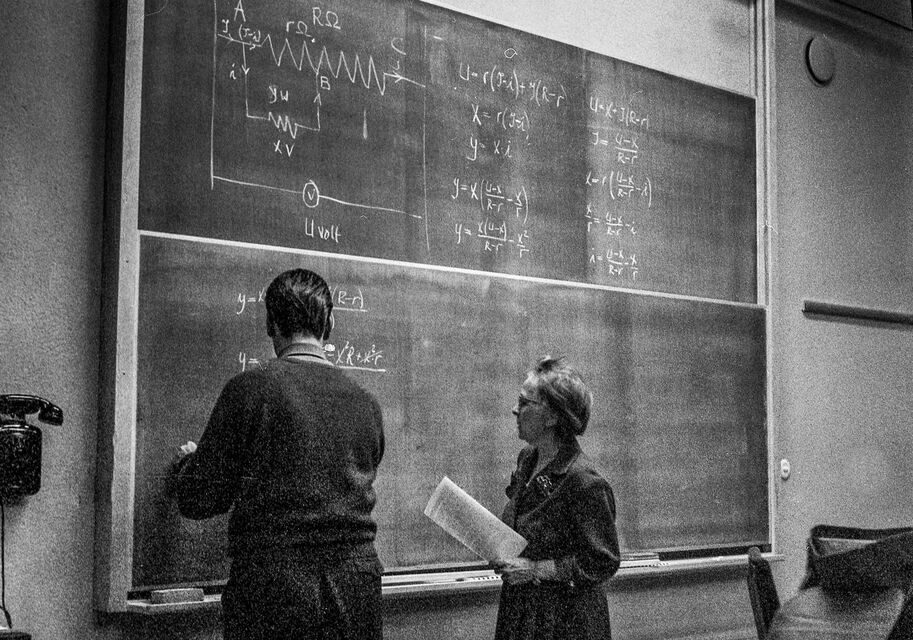 A
RΩ
rΩ
J (J-i)
C
J
i
B
yw
xV
V
U volt
a
U = r(J-i) + J(R-r)
X = r(J-i)
y = x·i
y = x(U-x/R-r - x/r)
y = x(U-x)/R-r - x²/r
U = x + J(R-r)
J = U-x/R-r
x = r(U-x/R-r - i)
x/r = U-x/R-r - i
i = U-x/R-r - x/r
y = x (R-r)
y = - x²R + x²r